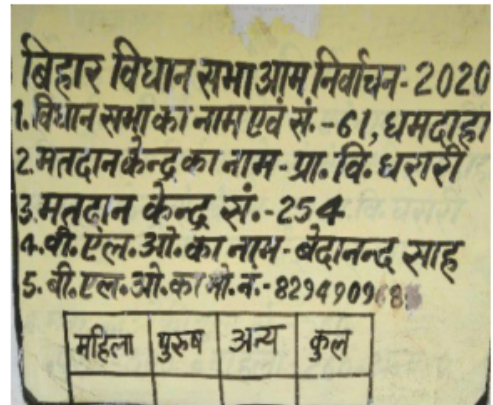 बिहार विधान सभा आम निर्वाचन- 2020
1. विधान सभा का नाम एवं सं.-61, धमदाहा
2. मतदान केन्द्र का नाम- प्रा. वि. धरारी
3. मतदान केन्द्र सं.-254
4. बी. एल. ओ. का नाम- बेदानन्द साह
5. बी. एल. ओ. का मो. नं.-
महिला पुरुष अन्य कुल